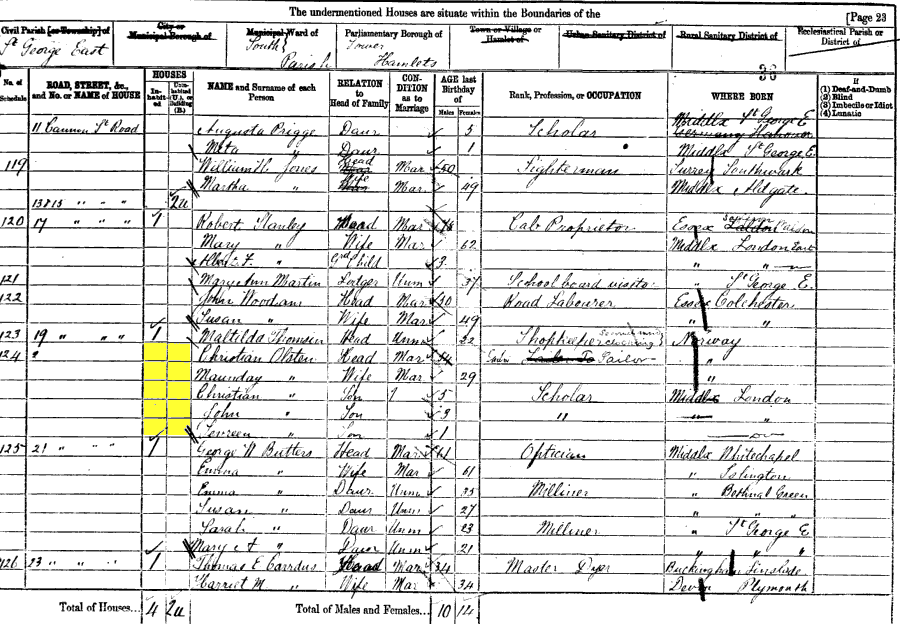 The undermentioned Houses are situate within the Boundaries of the
[Page 23
Civil Parish [or Township] of
St George East
City or Municipal Borough of
Municipal Ward of
South Parish
Parliamentary Borough of
Tower Hamlets
Town or Village or Hamlet of
Urban Sanitary District of
Rural Sanitary District of
Ecclesiastical Parish or District of
No. of Schedule
ROAD, STREET, &c., and No. or NAME of HOUSE
HOUSES
Inhabited
Uninhabited (U.), or Building (B.)
NAME and Surname of each Person
RELATION to Head of Family
CONDITION as to Marriage
AGE last Birthday of
Males
Females
Rank, Profession, or OCCUPATION
WHERE BORN
If
(1) Deaf-and-Dumb
(2) Blind
(3) Imbecile or Idiot
(4) Lunatic
11 Cannon St Road Augusta Daur 5 Scholar Middlx St George E
Meta " Daur 1 Middlx St George E.
119 William H. Jones Head Mar 50 Surrey Southwark
Martha " Wife Mar 49 Middlx Aldgate
13 & 15 " " " 2u
120 17 " " " 1 Robert Stanley Head Mar Cab Proprietor Essex
Mary " Wife Mar 62 Middlx London
" Grd Child 3 " "
121 Mary Ann Martin Lodger Unm 37 School board visitor " St George E.
122 John Woodam Head Mar Road Labourer Essex Colchester
Susan " Wife Mar 49 " "
123 19 " " " 1 Matilda Head Unm 22 Shopkeeper Norway
124 " Christian Olsten Head Mar Tailor "
Maunday " Wife Mar 29 "
Christian " Son 5 Scholar Middlx London
John " Son 3 " "
" Son 1 "
125 21 " " " 1 George N Butters Head Mar 61 Optician Middlx Whitechapel
Emma " Wife Mar 61 " Islington
Emma " Daur Unm 35 Milliner " Bethnal Green
Susan " Daur Unm 27 " "
Sarah " Daur Unm 23 Milliner " St George E
Mary A " Daur Unm 21 " "
126 23 " " " 1 Thomas E Carrdus Head Mar 34 Master Dyer Buckingham
Harriet M " Wife Mar 34 Devon Plymouth
Total of Houses... 4 2u
Total of Males and Females... 10 14